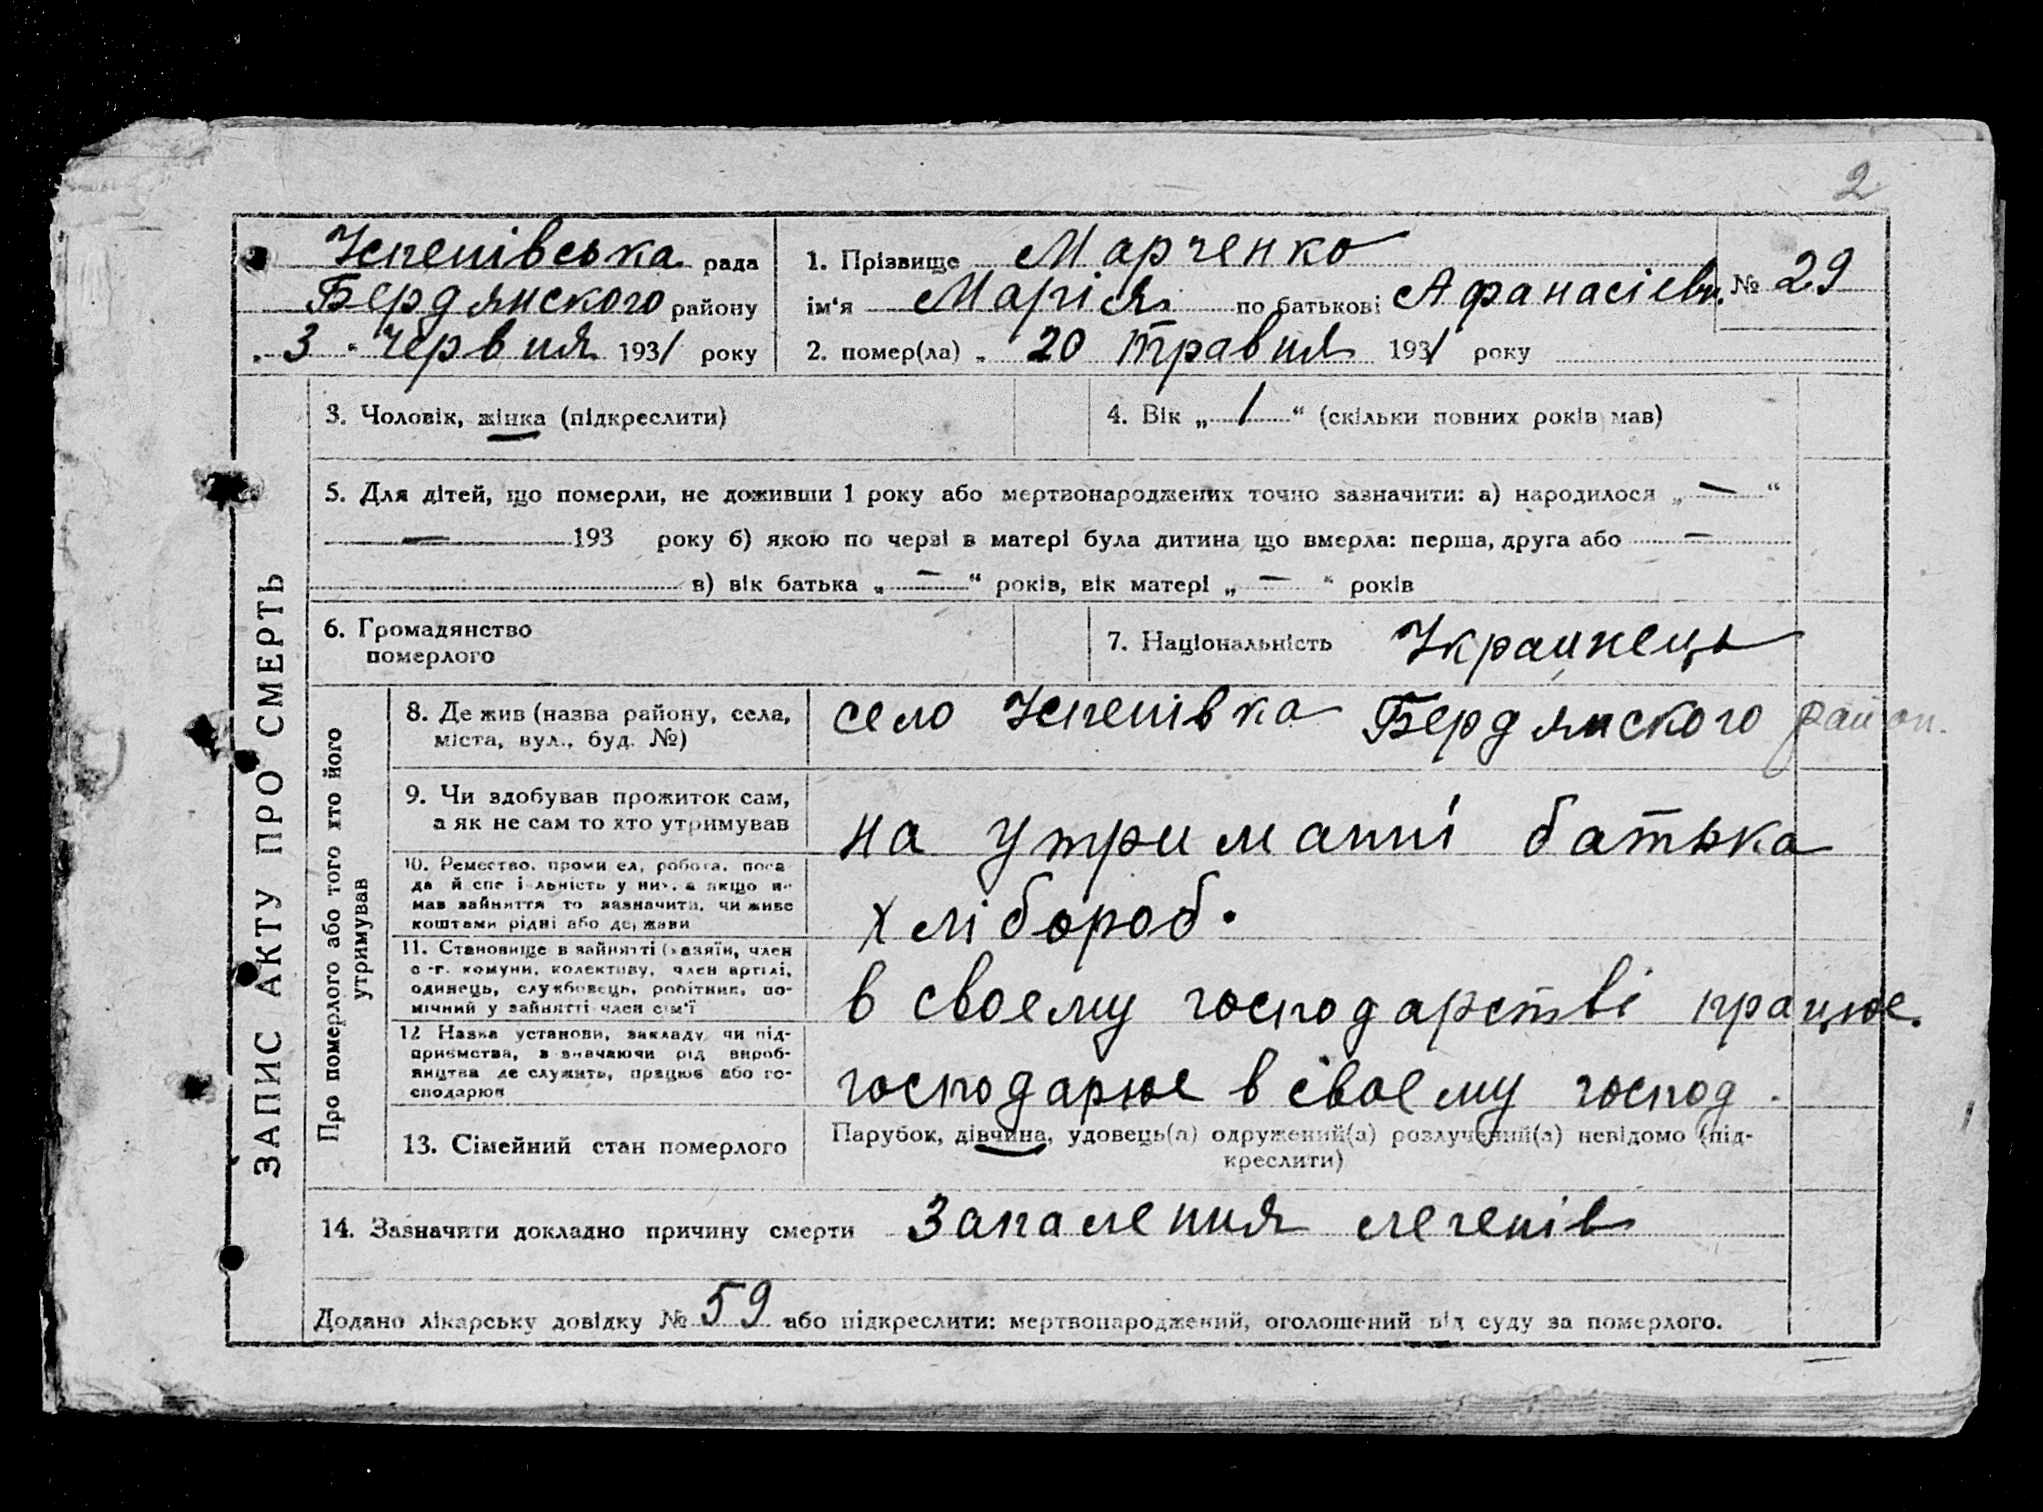 2
Успепівська рада
Бердянского району
„ 3 " червня 1931 року
1. Прізвище Марченко
ім'я Марія по батькові Афанасієвн.
№ 29
2. помер(ла) „ 20 травня 1931 року
ЗАПИС АКТУ ПРО СМЕРТЬ
3. Чоловік, жінка (підкреслити)
4. Вік „ 1 " (скільки повних років мав)
5. Для дітей, що померли, не доживши 1 року або мертвонароджених точно зазначити: а) народилося „ — "
— 193 року б) якою по черзі в матері була дитина що вмерла: перша, друга або —
в) вік батька „ — " років, вік матері „ — " років
6. Громадянство
померлого
7. Національність Украинець
Про померлого або того хто його
утримував
8. Де жив (назва району, села,
міста, вул., буд. №)
село Успепівка Бердянского район.
9. Чи здобував прожиток сам,
а як не сам то хто утримував
на утриманні батька
10. Ремество, промисел, робота, поса-
да й спеціяльність у них, а якщо не
мав зайняття то зазначити, чи живе
коштами рідні або держави
хлібороб.
11. Становище в зайнятті (хазяїн, член
с.-г. комуни, колективу, член артілі,
одинець, службовець, робітник, по-
мічний у зайнятті член сім'ї
в своему господарстві працює.
12 Назва установи, закладу чи під-
приємства, зазначаючи рід вироб-
ництва де служить, працює або го-
сподарює
господарює в своему господ.
13. Сімейний стан померлого
Парубок, дівчина, удовець(а) одружений(а) розлучений(а) невідомо (під-
креслити)
14. Зазначити докладно причину смерти Запалення легенів
Додано лікарську довідку № 59 або підкреслити: мертвонароджений, оголошений від суду за померлого.